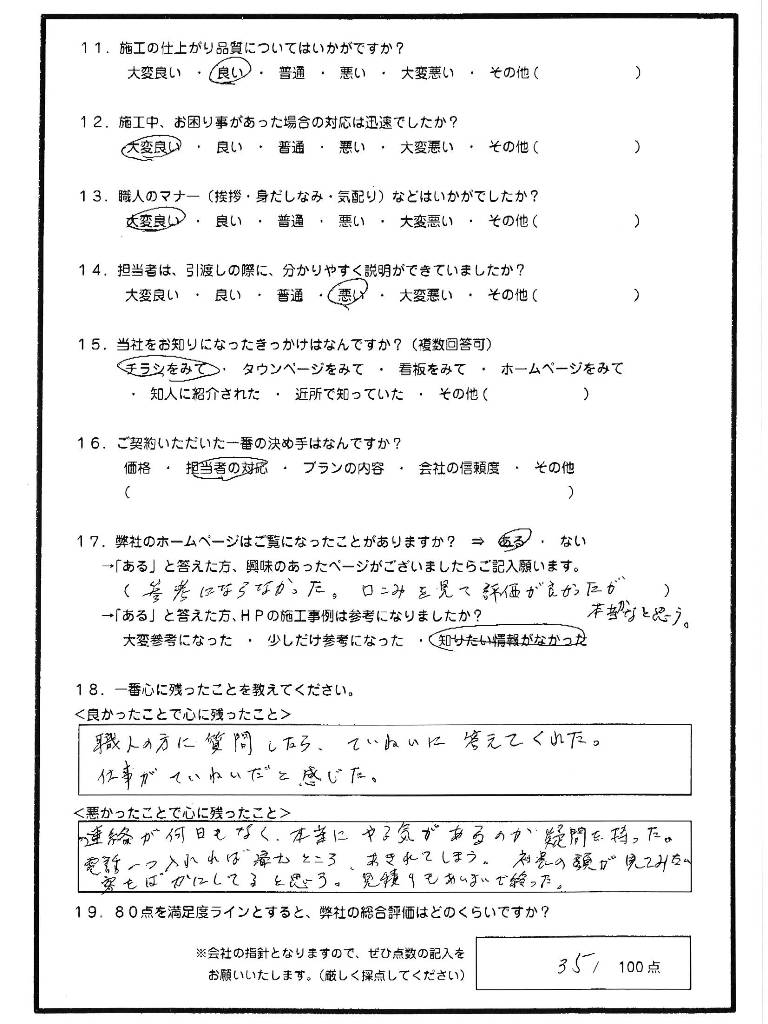 １１．施工の仕上がり品質についてはいかがですか？
大変良い ・ 良い ・ 普通 ・ 悪い ・ 大変悪い ・ その他（　　　　　　）
１２．施工中、お困り事があった場合の対応は迅速でしたか？
大変良い ・ 良い ・ 普通 ・ 悪い ・ 大変悪い ・ その他（　　　　　　）
１３．職人のマナー（挨拶・身だしなみ・気配り）などはいかがでしたか？
大変良い ・ 良い ・ 普通 ・ 悪い ・ 大変悪い ・ その他（　　　　　　）
１４．担当者は、引渡しの際に、分かりやすく説明ができていましたか？
大変良い ・ 良い ・ 普通 ・ 悪い ・ 大変悪い ・ その他（　　　　　　）
１５．当社をお知りになったきっかけはなんですか？（複数回答可）
チラシをみて ・ タウンページをみて ・ 看板をみて ・ ホームページをみて
・ 知人に紹介された ・ 近所で知っていた ・ その他（　　　　　　）
１６．ご契約いただいた一番の決め手はなんですか？
価格 ・ 担当者の対応 ・ プランの内容 ・ 会社の信頼度 ・ その他
（　　　　　　　　　　　　）
１７．弊社のホームページはご覧になったことがありますか？ ⇒ ある ・ ない
→「ある」と答えた方、興味のあったページがございましたらご記入願います。
（ 参考にならなかった。口こみを見て評価が良かったが ）
→「ある」と答えた方、ＨＰの施工事例は参考になりましたか？
なと思う。
大変参考になった ・ 少しだけ参考になった ・ 知りたい情報がなかった
１８．一番心に残ったことを教えてください。
＜良かったことで心に残ったこと＞
職人の方に質問したら、ていねいに答えてくれた。
仕事がていねいだと感じた。
＜悪かったことで心に残ったこと＞
連絡が何日もなく、本当にやる気があるのか疑問を持った。
電話一つ入れれば済むところ、あきれてしまう。社長の顔が見てみたい
ばかにしてると思う。見積りもあいまいで終った。
１９．８０点を満足度ラインとすると、弊社の総合評価はどのくらいですか？
※会社の指針となりますので、ぜひ点数の記入を
お願いいたします。（厳しく採点してください）
35/ 100点